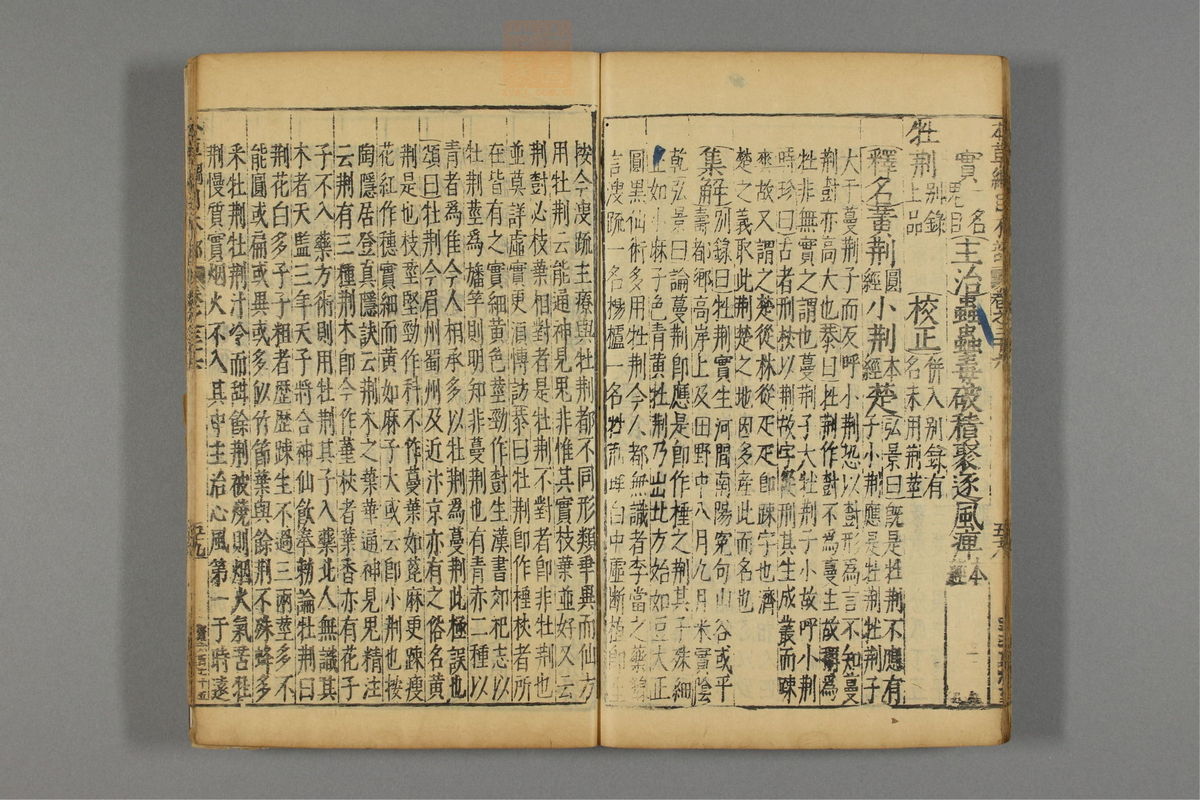 實名 主治蟲蠱毒破積聚逐風痺本經
牡荊別錄上品 校正併入別錄有名未用荊莖
釋名黃荊圖經小荊本經楚弘景曰既是牡荊不應有子小荊應是牡荊牡荊子
大于蔓荊子而反呼小荊恐以樹形為言不知蔓
荊樹亦高大也恭曰牡荊作樹不為蔓生故稱為
牡非無實之謂也蔓荊子大牡荊子小故呼小荊
時珍曰古者刑杖以荊故字從刑其生成叢而疎
爽故又謂之楚從林從疋疋即疎字也濟
楚之義取此荊楚之地因多産此而名也
集解別錄曰牡荊實生河間南陽冤句山谷或平壽都鄉高岸上及田野中八月九月采實陰
乾弘景曰論蔓荊即應是即作棰之荊其子殊細
正如小麻子色青黃牡荊乃出北方如豆大正
圓黑仙術多用牡荊今人都無識者李當之藥錄
言溲疏一名楊櫨一名牡荊中虛斷
按今溲疏主療與牡荊都不同形類乖異而仙方
用牡荊云能通神見鬼非惟其實枝葉並好又云
荊樹必枝葉相對者是牡荊不對者即非牡荊也
並莫詳虛實更須博訪恭曰牡荊即作棰杖者所
在皆有之實細黃色莖勁作樹生漢書郊祀志以
牡荊莖為幡竿則明知非蔓荊也有青赤二種以
青者為佳今人相承多以牡荊為蔓荊此極誤也
頌曰牡荊今眉州蜀州及近汴京亦有之俗名黃
荊是也枝莖堅勁作科不作蔓葉如蓖麻更疎瘦
花紅作穗實細而黃如麻子大或云即小荊也按
陶隱居登真隱訣云荊木之葉華通神見鬼精注
云荊有三種荊木即今作箠杖者葉香亦有花子
子不入藥方術則用牡荊其子入藥北人無識其
木者天監三年天子將合神仙飲奉勅論牡荊曰
荊花白多子子粗者歷歷疎生不過三兩莖多不
能圓或扁或異或多似竹節葉與餘荊不殊蜂多
采牡荊牡荊汁冷而甜餘荊被燒則烟火氣苦牡
荊慢質實烟火不入其中主治心風第一于時遠